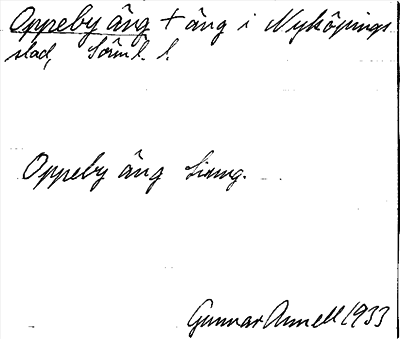 Oppeby äng + äng i Nyköpings
stad, Sörml. l.
Oppeby äng
Gunnar Annell 1933